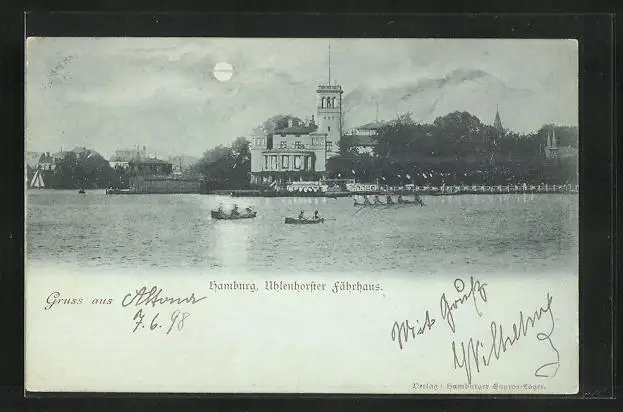 Hamburg, Uhlenhorster Fährhaus.
Gruss aus Altona
7.6.98
Mit Gruß
Wilhelm
Verlag: Hamburger Engros-Lager.